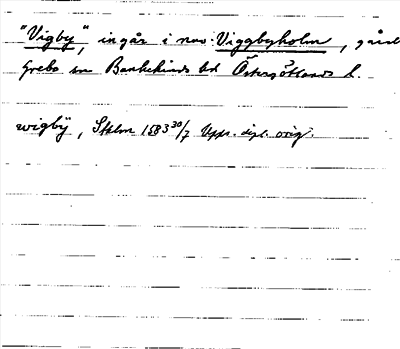 "Vigby", ingår i nav: Viggbyholm, gård
Grebo sn Bankekinds hd Östergötlands l.
wigbÿ, Sthlm 1583 30/7 Upps. dipl. orig.